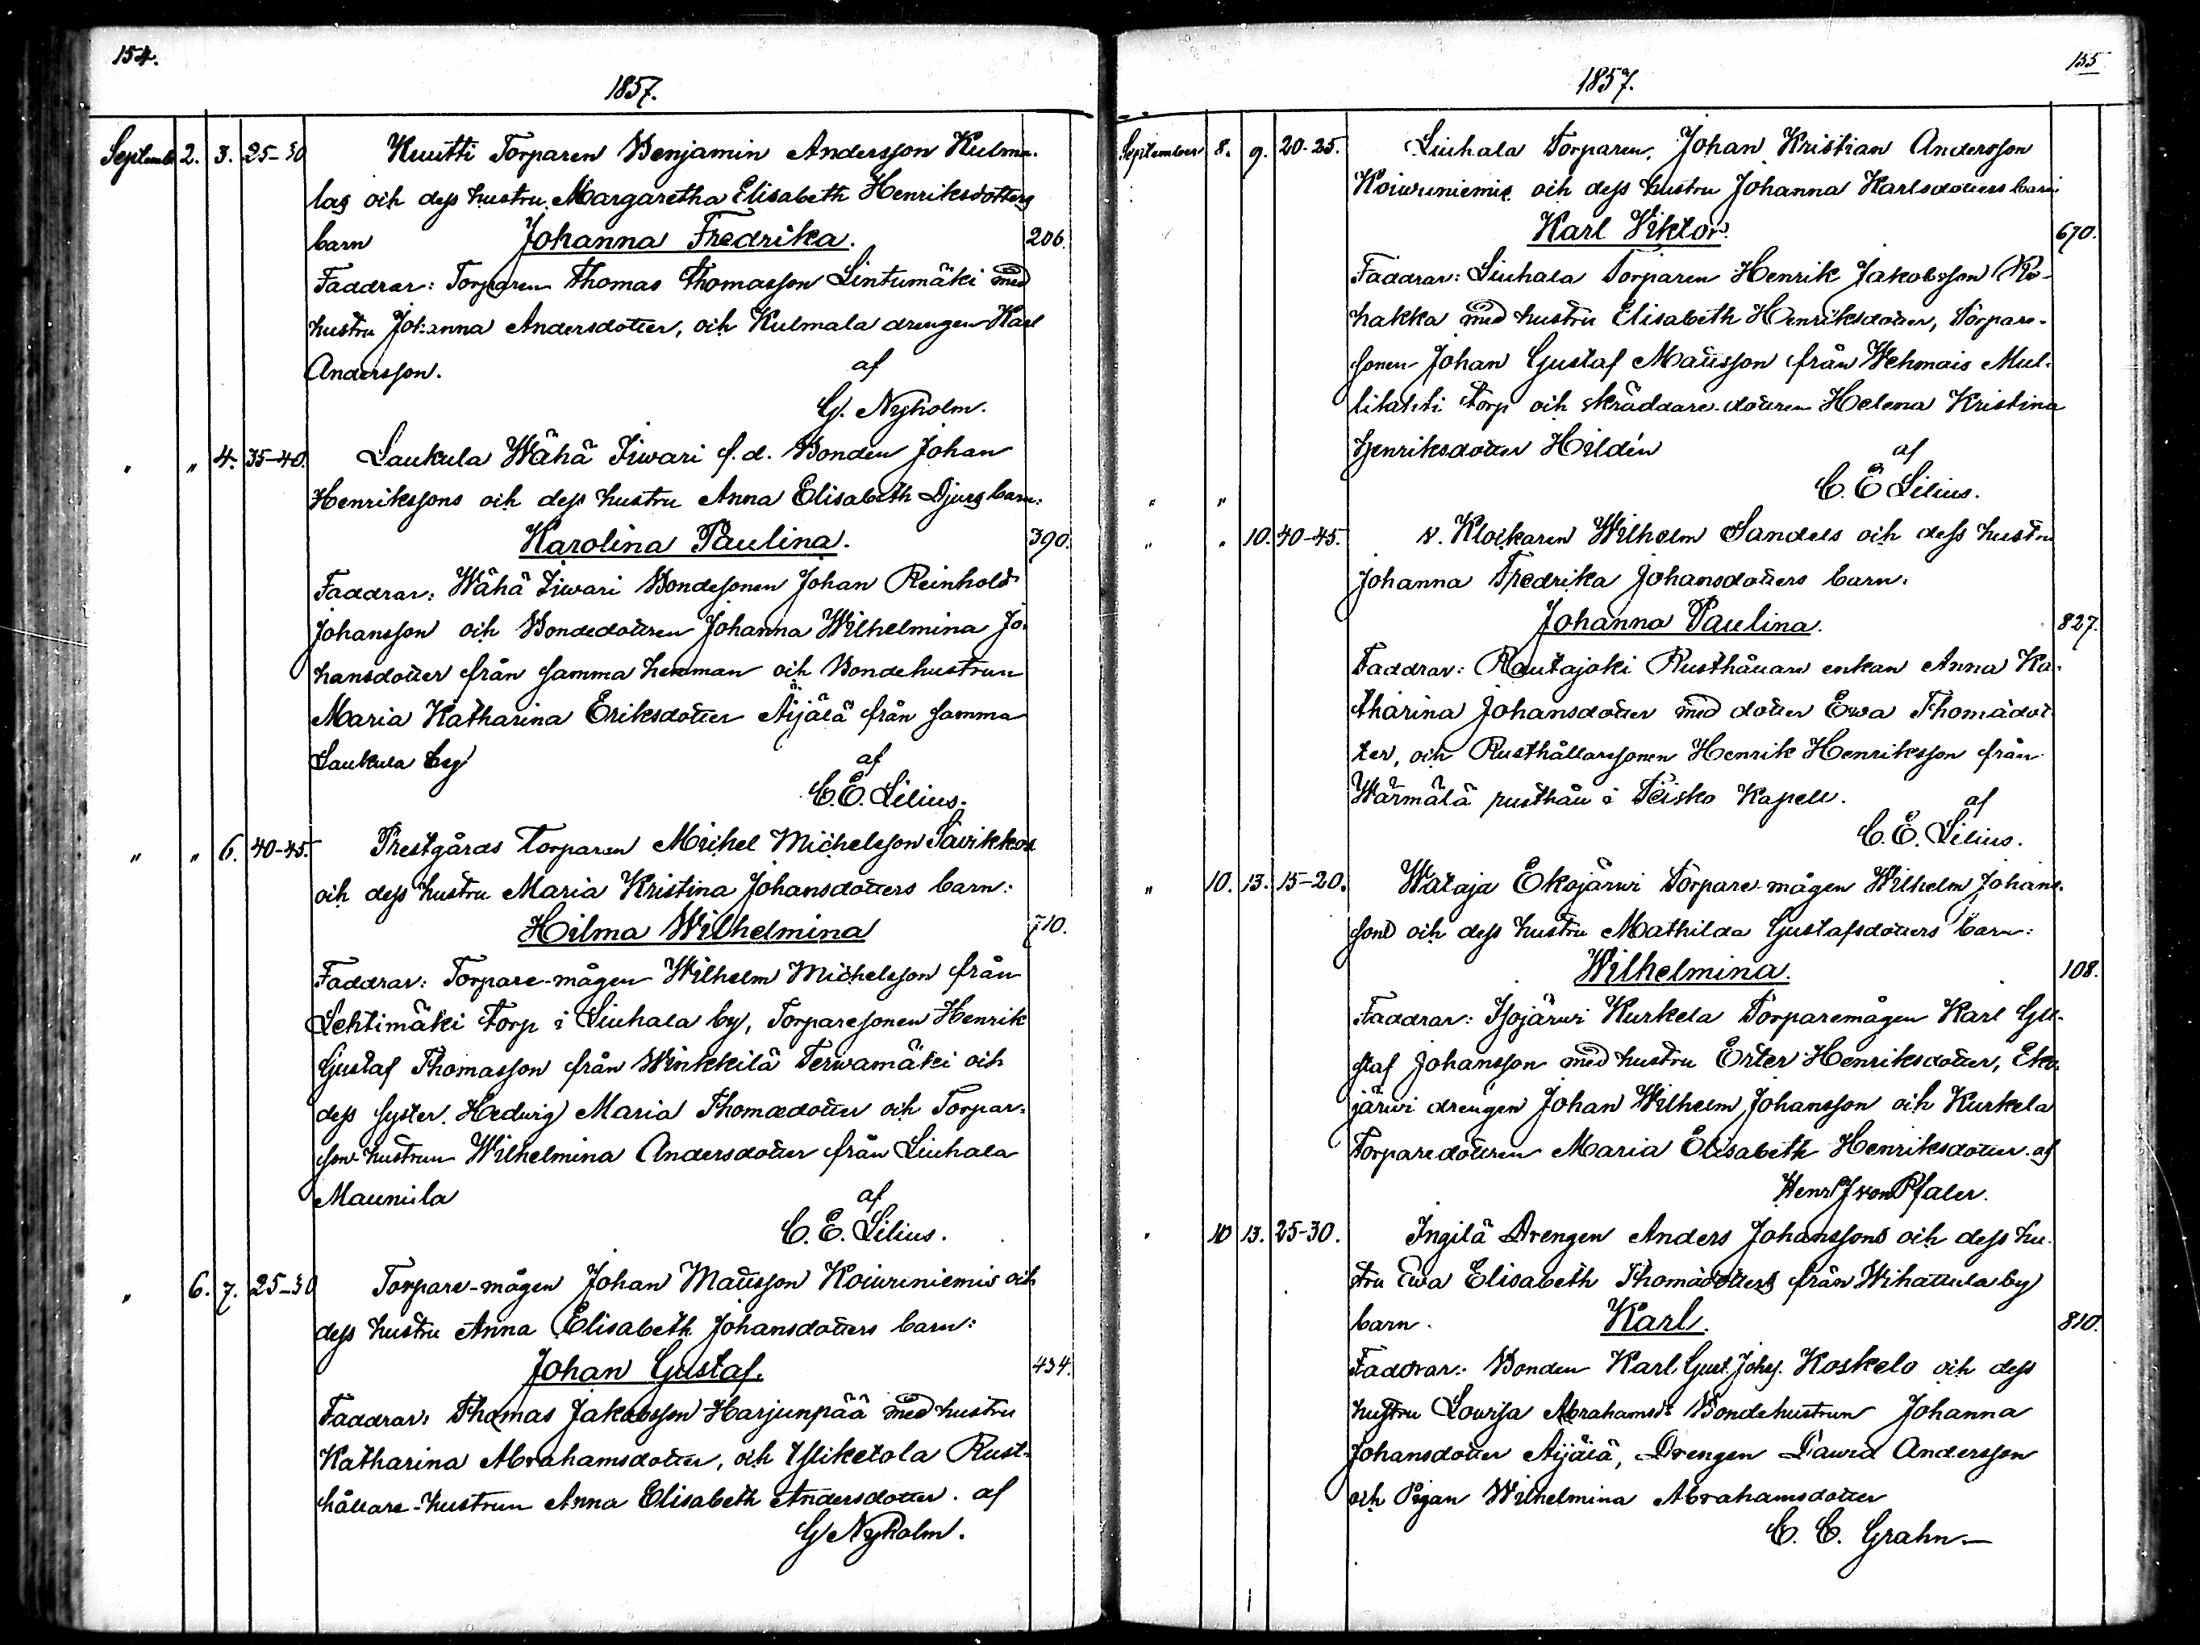 154.
1857.
Septemb. 2. 3. 25-30 Kuutti Torparen Benjamin Andersson Kulma-
las och dess hustru Margaretha Elisabeth Henriksdotters
barn Johanna Fredrika. 206.
Faddrar: Torparen Thomas Thomasson Lintumäki med
hustru Johanna Andersdotter, och Kulmala drengen Karl
Andersson. af
G. Nyholm.
" " 4. 35-40. Laukula Wähä Iiwari f.d. Bonden Johan
Henrikssons och dess hustru Anna Elisabeth Djurs barn:
Karolina Paulina. 390.
Faddrar: Wähä Iiwari Bondesonen Johan Reinhold
Johansson och Bondedottren Johanna Wilhelmina Jo-
hansdotter från samma hemman och Bondehustrun
Maria Katharina Eriksdotter Äijälä från samma
Laukula by af
C. E. Lilius.
" " 6. 40-45. Prestgårds Torparen Mickel Michelsson Sawikkos
och dess hustru Maria Kristina Johansdotters barn:
Hilma Wilhelmina 710.
Faddrar: Torpare-mågen Wilhelm Michelsson från
Lehtimäki Torp i Liuhala by, Torparesonen Henrik
Gustaf Thomasson från Winkkilä Terwamäki och
dess syster Hedwig Maria Thomædotter och Torpar-
son-hustrun Wilhelmina Andersdotter från Liuhala
Maunula af
C. E. Lilius.
" 6. 7. 25-30 Torpare-mågen Johan Mattsson Koiwuniemis och
dess hustru Anna Elisabeth Johansdotters barn:
Johan Gustaf. 434.
Faddrar: Thomas Jakobsson Harjunpää med hustru
Katharina Abrahamsdotter, och Yliketola Rust-
hållare-hustrun Anna Elisabeth Andersdotter. af
G Nyholm.
155
1857.
September 8. 9. 20-25. Liuhala Torparen, Johan Kristian Andersson
Koiwuniemis och dess hustru Johanna Karlsdotters barn:
Karl Viktor. 670.
Faddrar: Liuhala Torparen Henrik Jakobsson Ro-
hakka med hustru Elisabeth Henriksdotter, Torpare-
sonen Johan Gustaf Mattsson från Wehmais Mul-
litahti Torp och skräddare-dottren Helena Kristina
Henriksdotter Hildén af
C. E. Lilius.
" "
" " 10. 40-45. v. Klockaren Wilhelm Sandels och dess hustru
Johanna Fredrika Johansdotters barn:
Johanna Paulina. 827.
Faddrar: Rautajoki Rusthållare enkan Anna Ka-
tharina Johansdotter med dotter Ewa Thomædot-
ter, och Rusthållarssonen Henrik Henriksson från
Wärmälä rusthåll i Teisko Kapell. af
C. E. Lilius.
" 10. 13. 15-20. Wataja Ekojärwi Torpare-mågen Wilhelm Johans-
sons och dess hustru Mathilda Gustafsdotters barn:
Wilhelmina. 108.
Faddrar: Isojärwi Kurkela Torparemågen Karl Gu-
staf Johansson med hustru Ester Henriksdotter, Eko-
järwi drengen Johan Wilhelm Johansson och Kurkela
Torparedottren Maria Elisabeth Henriksdotter. af
Henr J von Pfaler.
" 10 13. 25-30. Ingilä Drengen Anders Johanssons och dess hu-
stru Ewa Elisabeth Thomædotters från Wihattula by
barn. Karl. 810.
Faddrar: Bonden Karl Gust. Johs. Koskelo och dess
hustru Lowisa Abrahamsd: Bondehustrun Johanna
Johansdotter Äijälä, Drengen David Andersson
och Pigan Wilhelmina Abrahamsdotter
C. C. Grahn.—